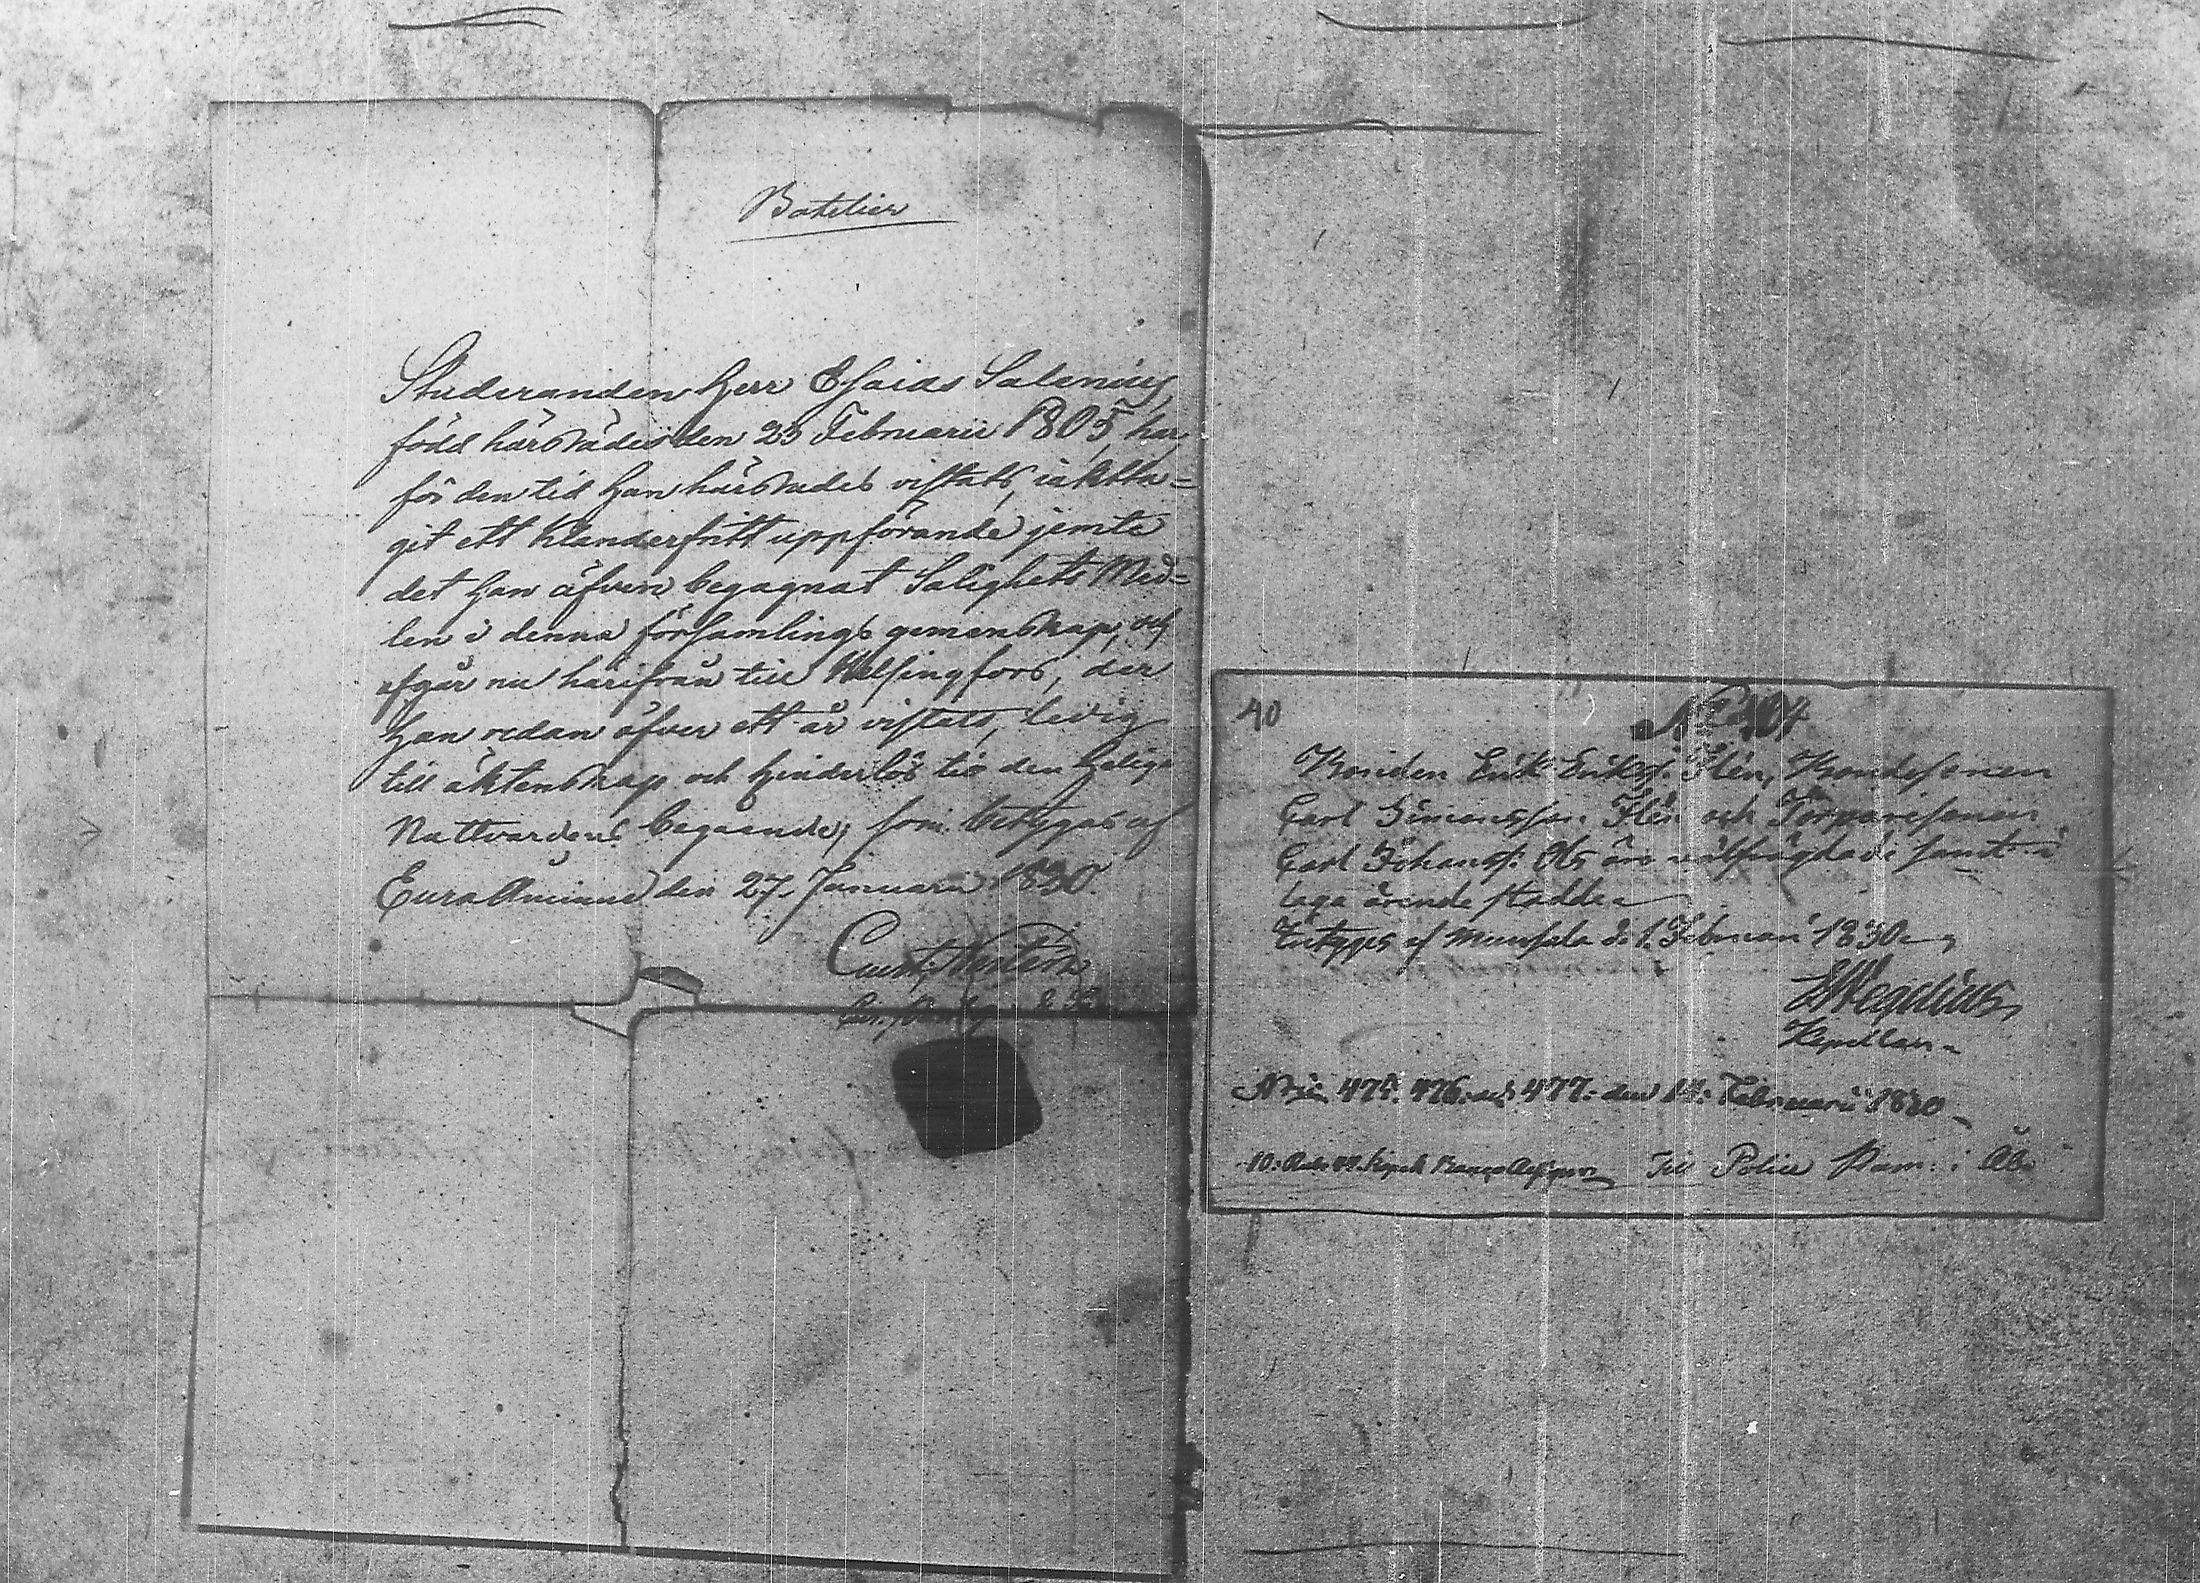 Studeranden Herr Esaias Salenius,
född härstädes den 25 Februarii 1805, har
för den tid Han härstädes vistats, iaktta=
git ett klanderfritt uppförande jemte
det Han äfven begagnat Salighets Med=
len i denna församlings gemenskap, och
afgår nu härifrån till Helsingfors, der
Han redan öfver ett år vistats, ledig
till äktenskap och hinderlös till den Heliga
Nattvardens begående, som betygas af
Eura Åminne den 27 Januarii 1830.
40
No 404
Bonden Erik Eriksf. Ilén, Bondesonen
Carl Simonsson Ilén och Torparesonen
Carl Johansf. äro välfrägdade samt i
laga ärende stadde
Betyges af Munsala d. 1. Februari 1830
Wegelius
Kapellan
476 och 477 den 14 Februarii 1830
Till Police Kam: i Åbo